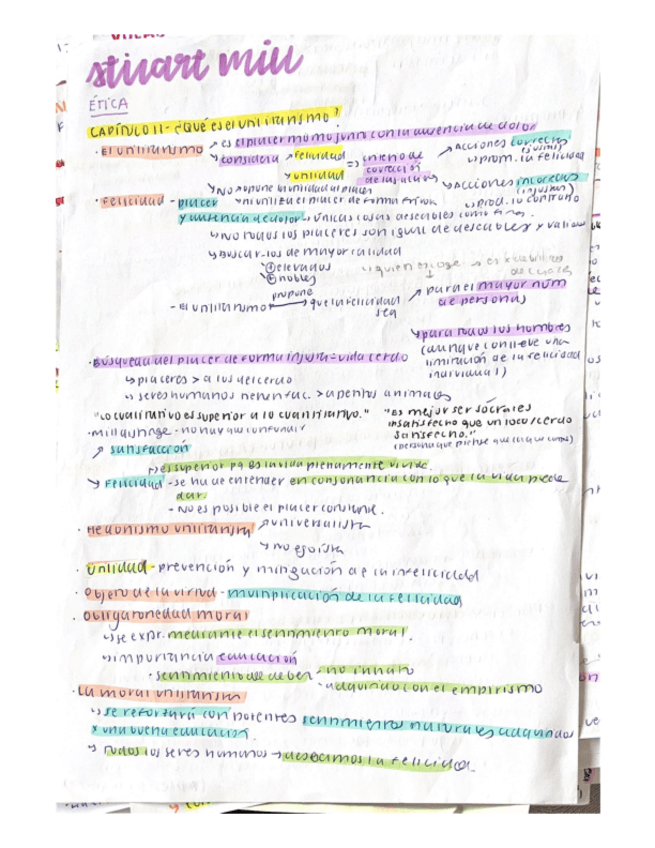 stuart mill
ÉTICA
CAPÍTULO II - ¿Qué es el utilitarismo?
· El utilitarismo → es el placer mismo junto con la ausencia de dolor
↳ considera → felicidad → utilidad ⇒ criterio de corrección de las acciones
↗ Acciones correctas (justas)
↳ prom. la felicidad
↘ Acciones incorrectas (injustas)
↳ prod. lo contrario
↳ No opone la utilidad al placer
· Felicidad - placer ni utiliza el placer de forma
y ausencia de dolor → únicas cosas deseables como fines.
↳ No todos los placeres son igual de deseables y valiosos
↳ Buscar los de mayor calidad
⊕ elevados
⊕ nobles
↳ quien escoge →
- El utilitarismo propone → que la felicidad sea
↗ para el mayor núm de personas
↳ para todos los hombres
(aunque conlleve una
limitación de la felicidad
individual)
· Búsqueda del placer de forma injusta = vida cerdo
↳ placeres > a los del cerdo
↳ seres humanos tienen fac. > apetitos animales
"Lo cualitativo es superior a lo cuantitativo."
"Es mejor ser Sócrates
insatisfecho que un loco/cerdo
satisfecho."
· Mill distingue - no hay que confundir
↗ satisfacción
↳ es superior pq es la vida plenamente vivida.
↘ Felicidad - se ha de entender en consonancia con lo que la vida puede
dar.
- No es posible el placer constante.
· Hedonismo utilitarista ↗ universalista
↘ no egoísta
· Utilidad - prevención y mitigación de la infelicidad
· Objeto de la virtud - multiplicación de la felicidad
· Obligatoriedad moral
↳ se expr. mediante el sentimiento moral.
↳ importancia educación
· sentimiento de deber - no innato
- adquirido con el empirismo
· La moral utilitarista
↳ se reforzará con potentes sentimientos naturales adquiridos
y una buena educación.
↳ Todos los seres humanos → deseamos la felicidad